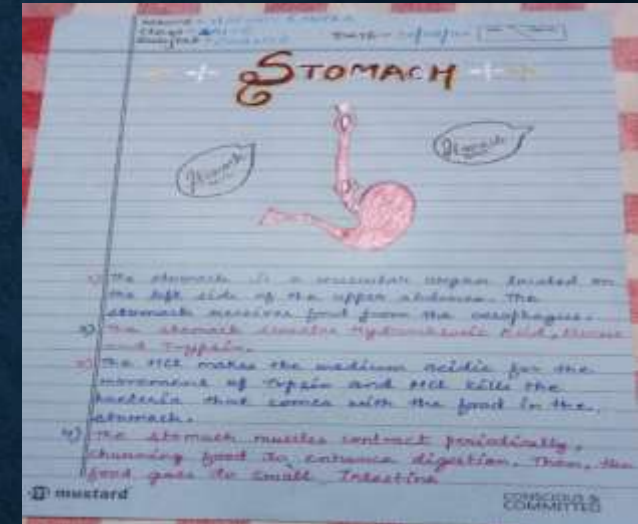 STOMACH
Stomach
Stomach
1) The stomach is a muscular organ located on
the left side of the upper abdomen. The
stomach receives food from the oesophagus.
2) The stomach secretes Hydrochloric Acid, Mucus
and Trypsin.
3) The HCL makes the medium acidic for the
movement of Tripsin and HCL kills the
bacteria that comes with the food in the
stomach.
4) The stomach muscles contract periodically,
churning food to enhance digestion. Then, the
food goes to small Intestine
mustard
CONSCIOUS &
COMMITTED